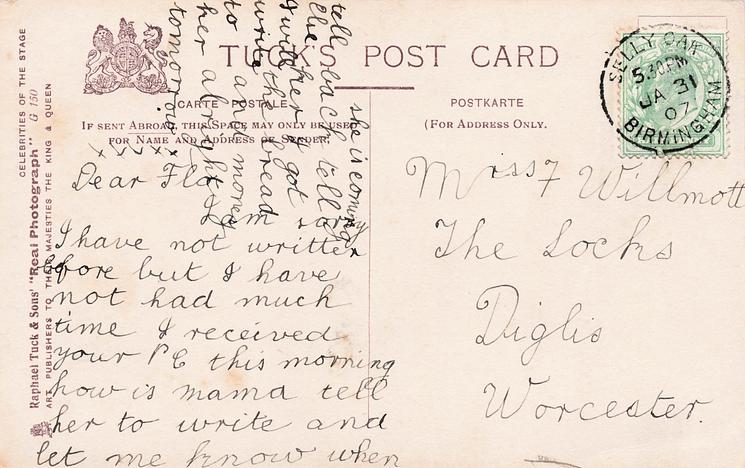 TUCK'S POST CARD
CARTE POSTALE
POSTKARTE
IF SENT ABROAD, THIS SPACE MAY ONLY BE USED
FOR NAME AND ADDRESS OF SENDER.
(FOR ADDRESS ONLY.
CELEBRITIES OF THE STAGE
Raphael Tuck & Sons' "Real Photograph" G 150
ART PUBLISHERS TO THEIR MAJESTIES THE KING & QUEEN
SELLY OAK
5.30PM
JA 31
07
BIRMINGHAM
Dear Flo
I am sorry
I have not written
before but I have
not had much
time I received
your PC this morning
how is mama tell
her to write and
let me know when
she is coming
back tell
her I got
the bread
and money
alright
write
to
her
tomorrow
tell
Miss F Willmott
The Locks
Diglis
Worcester.